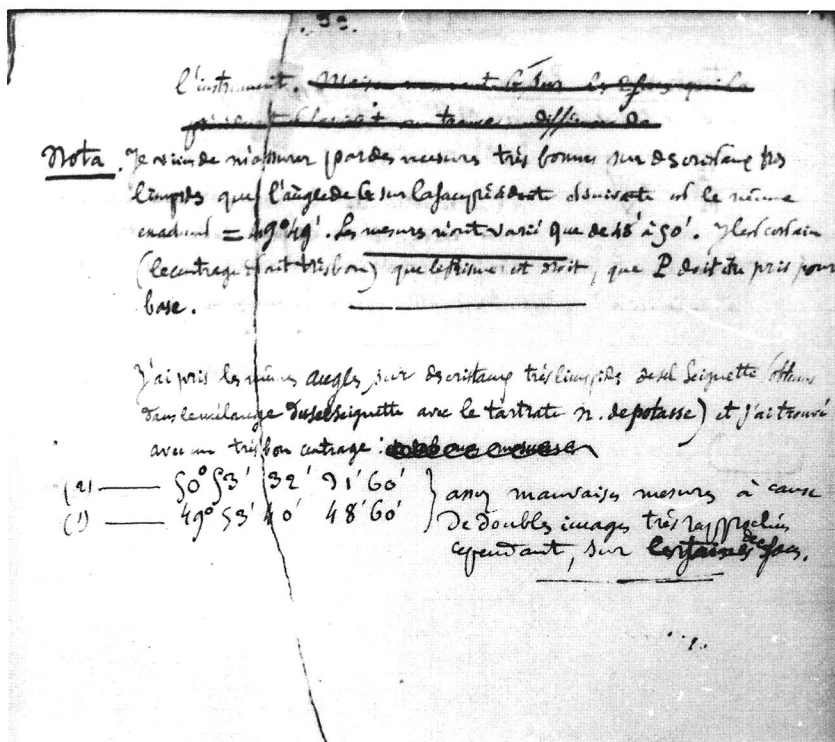 l'instrument.
Nota. Je viens de m'assurer par des mesures très bonnes sur des cristaux très
limpides que l'angle de G sur la face précédente et suivante est le même
exactement = 49° 49'. Les mesures n'ont varié que de 48' à 50'. Il est certain
(le centrage était très bon) que le prisme est droit, que P doit être pris pour
base.
J'ai pris les mêmes angles sur des cristaux très limpides de sel Seignette
dans le mélange du sel seignette avec le tartrate n. de potasse) et j'ai trouvé
avec un très bon centrage :
(2) — 50° 53' 32' 31' 60'
(1) — 49° 53' 40' 48' 60'
assez mauvaises mesures à cause
de doubles images très rapprochées
cependant, sur certaines des faces.